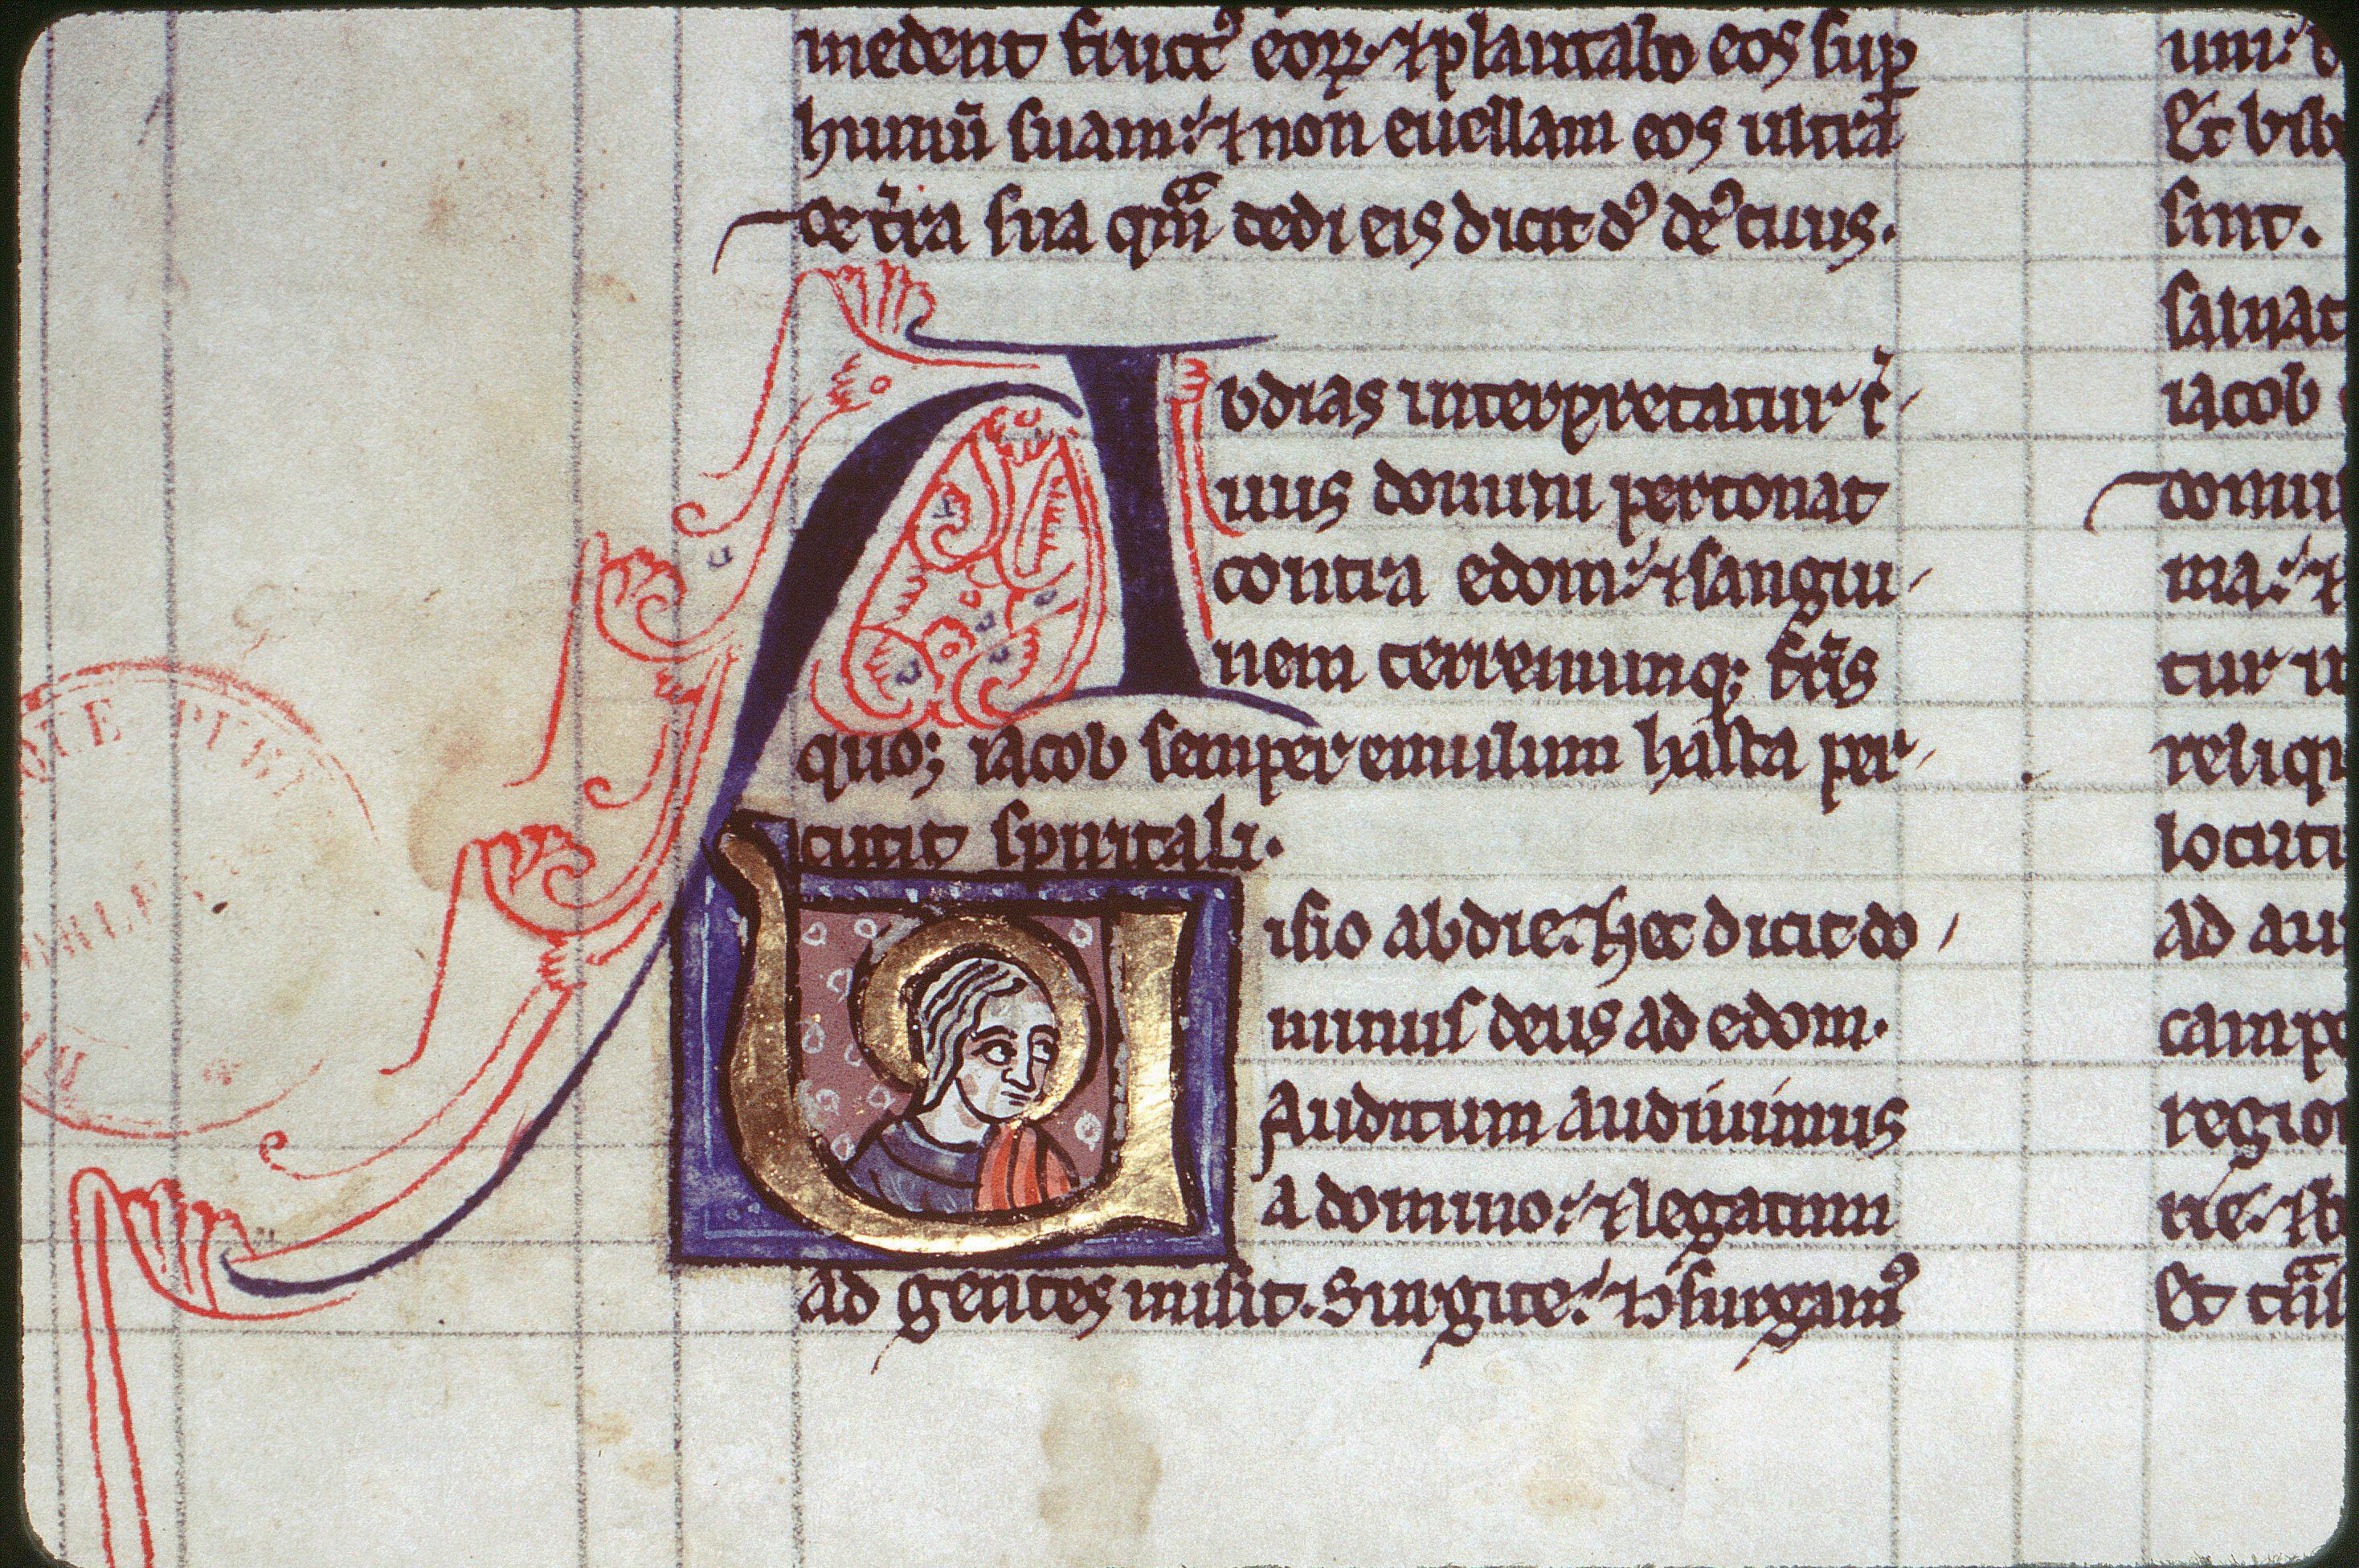 medent fructꝰ eoꝝ. ⁊ plantabo eos suꝑ
humū suam: ⁊ non euellam eos ultra
de tͥra sua qm̄ dedi eis dicit dꝰ deꝰ tuus.
Abdias interpretatur ẜ
uus domini pertonat
contra edom: ⁊ sangui
nem terrenumq; fr̄is
quo; iacob semper emulum hasta per
cutit spiritali.
Uisio abdie. hec dicit do
minus deus ad edom.
Auditum audiuimus
a domino: ⁊ legatum
ad gentes misit. Surgite: ⁊ ꝯsurgamꝰ
Et bib
sint.
saluat
iacob
domu
ma: ⁊
tur
reliq
locuti
ad au
campo
regio
rie. ⁊ b